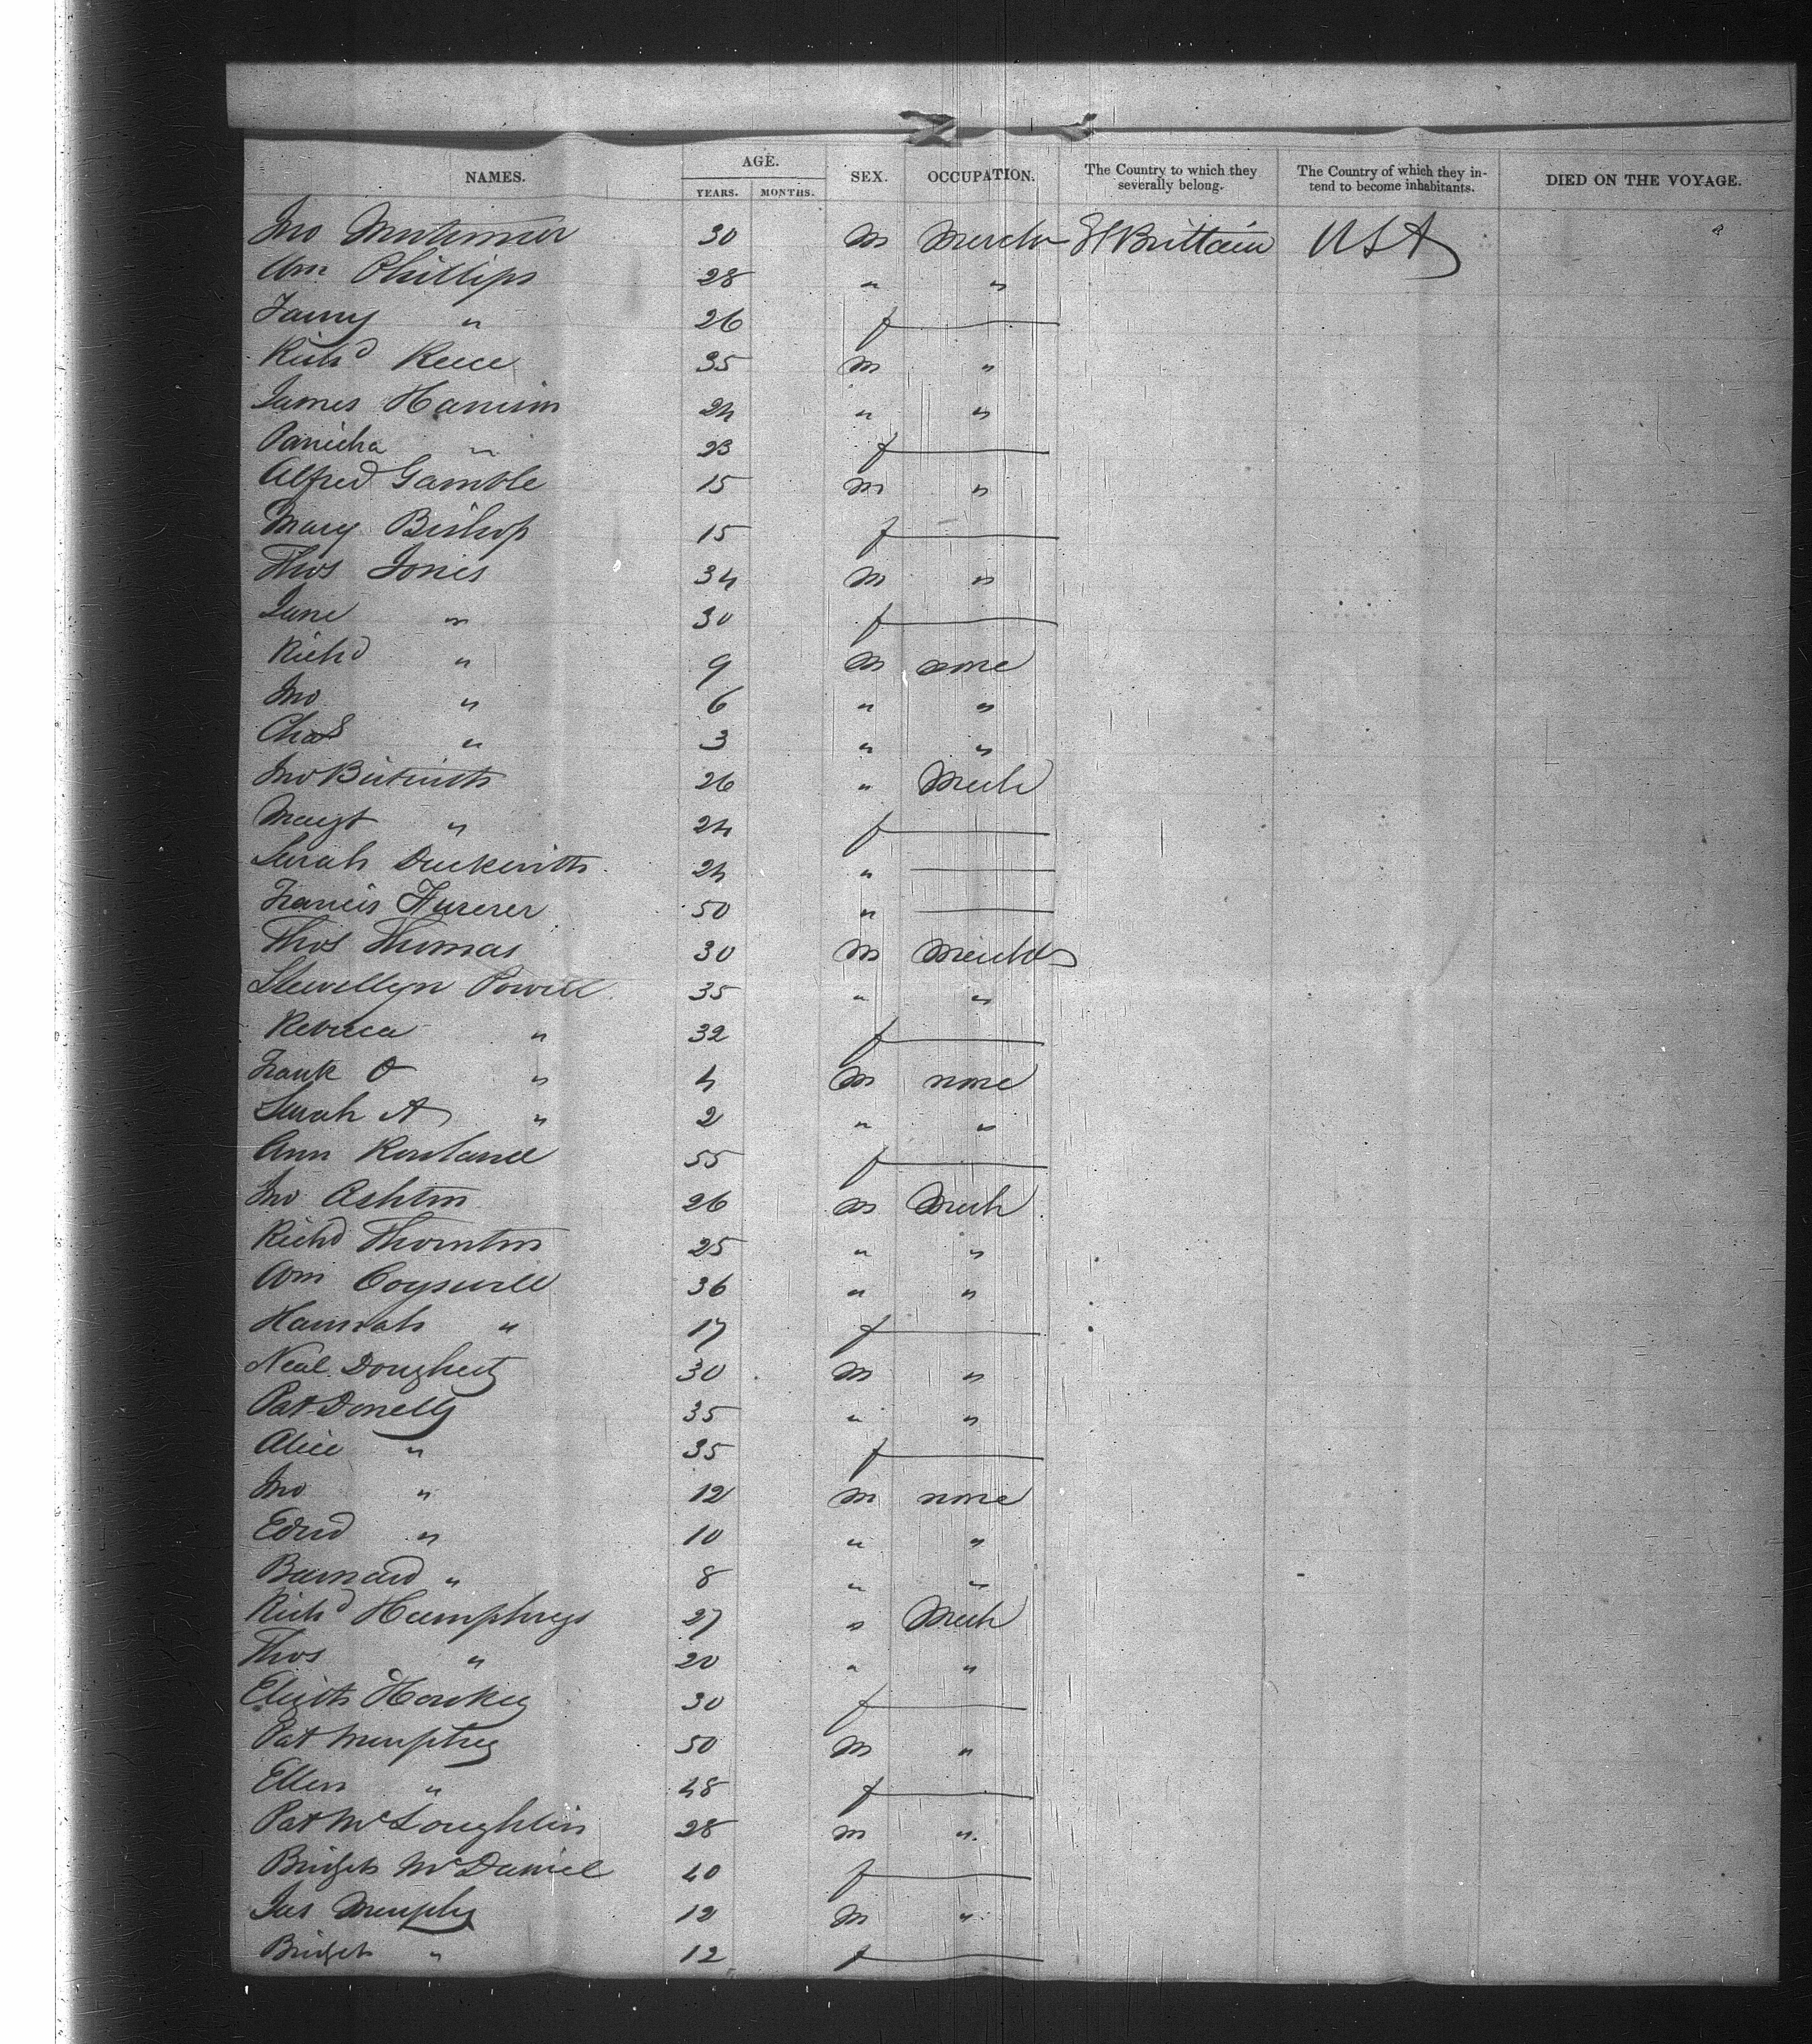 NAMES. AGE. YEARS. MONTHS. SEX. OCCUPATION. The Country to which they severally belong. The Country of which they intend to become inhabitants. DIED ON THE VOYAGE.
Jno Mortimer 30 m Merch Gt Brittain USA
Wm Phillips 28 " "
Fanny " 26 f
Richd Reece 35 m "
James Harrison 24 " "
" 23 f
Alfred Gamble 15 m "
Mary Bishop 15 f
Thos Jones 34 m "
Jane " 30 f
Richd " 9 m none
Jno " 6 " "
Chas " 3 " "
Jno 26 " Mech
Margt " 24 f
Sarah Duckworth 24 "
Francis 50 "
Thos Thomas 30 m
Llewellyn Powell 35 " "
Rebecca " 32 f
Frank O " 4 m none
Sarah A " 2 " "
Ann Rowland 55 f
Jno Ashton 26 m Mech
Richd Thornton 25 " "
Wm Coyswell 36 " "
Hannah " 17 f
Neal Dougherty 30 m "
Pat Donelly 35 " "
Alice " 35 f
Jno " 12 m none
Edwd " 10 " "
Barnard " 8 " "
Richd Humphreys 27 " Mech
Thos " 20 " "
Elizth 30 f
Pat Murphy 50 m "
Ellen " 48 f
Pat McLoughlin 28 m "
Bridget McDaniel 40 f
Jas Murphy 12 m "
Bridget " 12 f